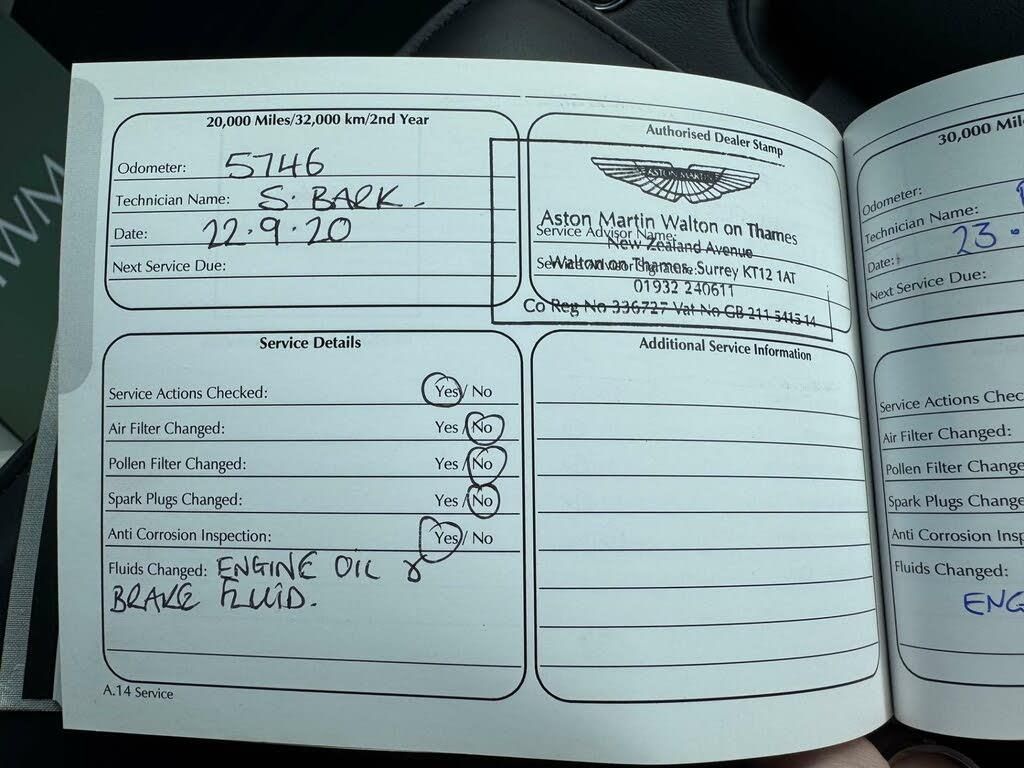 20,000 Miles/32,000 km/2nd Year
Odometer: 5746
Technician Name: S. BARK.
Date: 22.9.20
Next Service Due:
Authorised Dealer Stamp
ASTON MARTIN
Aston Martin Walton on Thames
Service Advisor Name:
New Zealand Avenue
Walton on Thames, Surrey KT12 1AT
01932 240611
Co Reg No 336727 Vat No GB 211 5415 14
Service Details
Service Actions Checked: Yes / No
Air Filter Changed: Yes / No
Pollen Filter Changed: Yes / No
Spark Plugs Changed: Yes / No
Anti Corrosion Inspection: Yes / No
Fluids Changed: ENGINE OIL &
BRAKE FLUID.
Additional Service Information
A.14 Service
30,000 Mil
Odometer:
Technician Name:
Date: 23.
Next Service Due:
Service Actions Chec
Air Filter Changed:
Pollen Filter Change
Spark Plugs Change
Anti Corrosion Insp
Fluids Changed:
ENG